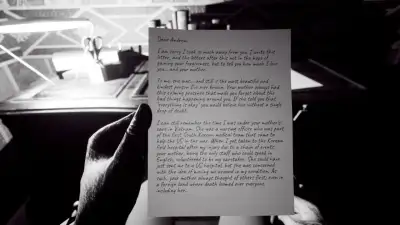 Dear Andrew,
I am sorry I was so much away from you. I write this
letter, and the letters after this not in the hope of
gaining your forgiveness, but to tell you how much I love
you... and your mother.
To me, was... and still is the most beautiful and
kindest person I've ever known. Your mother always had
this calming presence that made you forget about the
bad things happening around you. If she told you that
"everything is okay" you would believe her without a single
drop of doubt.
I can still remember the time I was under your mother's
care in Vietnam. She was a nursing officer who was part
of the first South Korean medical team that came to
help the US in the war. When I got taken to the Korean
field hospital after my injury due to a chain of events,
your mother, being the only staff who could speak in
English, volunteered to be my caretaker. She could have
just sent me to a US hospital, but she was concerned
with the idea of moving me around in my condition. As
such, your mother always thought of others first, even in
a foreign land where death loomed over everyone
including her.